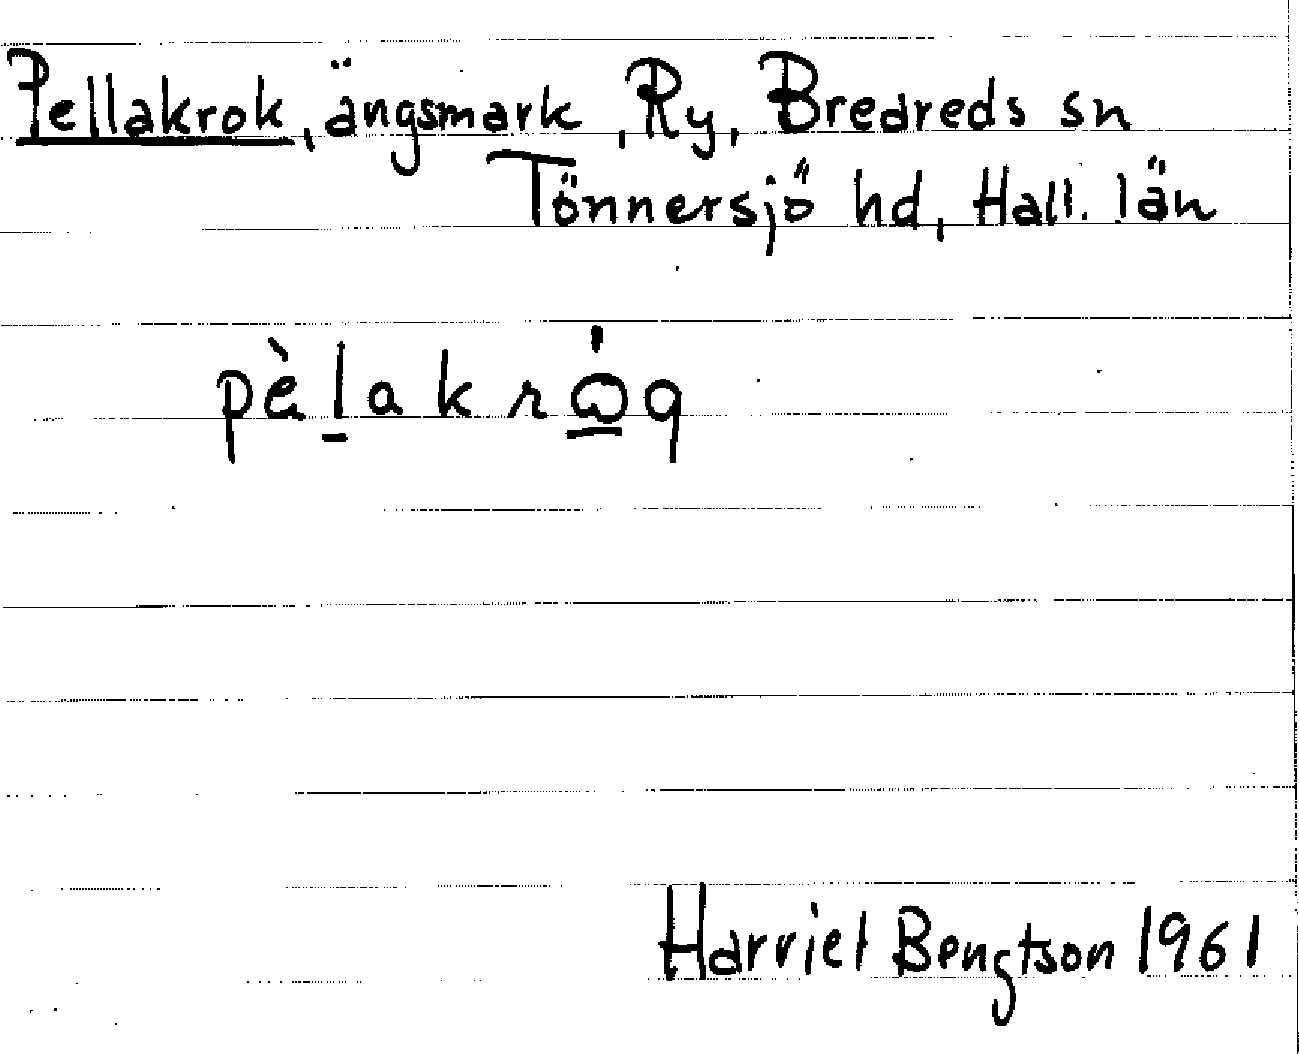 Pellakrok, ängsmark, Ry, Breareds sn
Tönnersjö hd, Hall. län
pèl̲akrώ̲q
Harriet Bengtson 1961